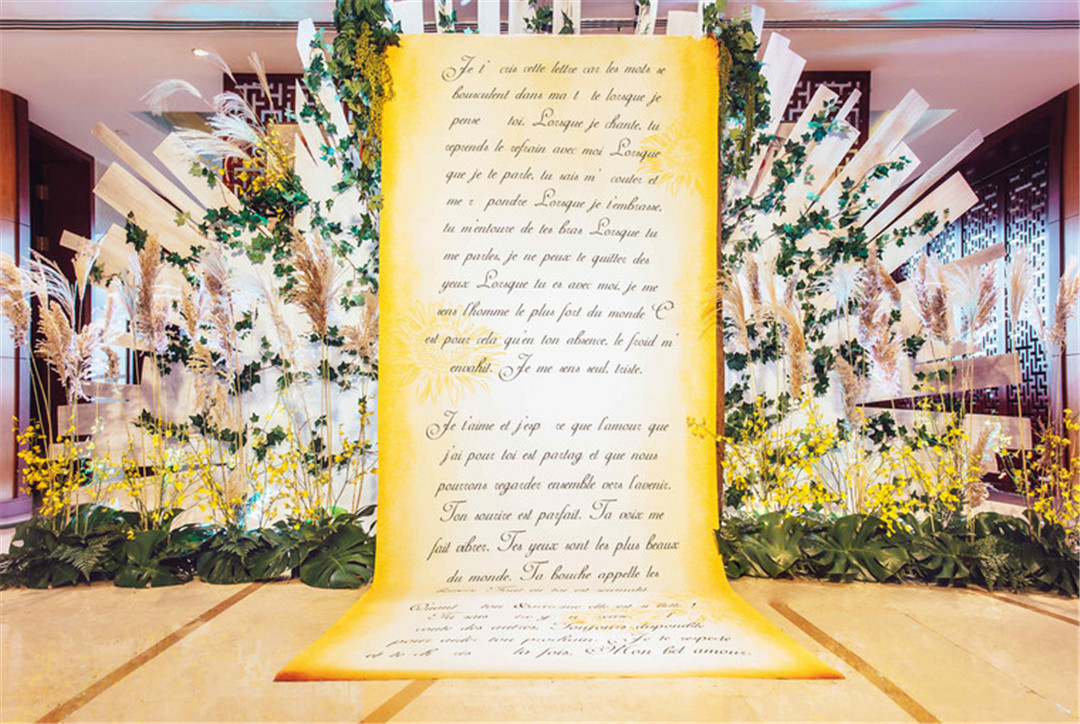 Je t' cris cette lettre car les mots se
bousculent dans ma t te lorsque je
pense toi. Lorsque je chante, tu
reprends le refrain avec moi Lorsque
que je te parle, tu sais m' couter et
me r pondre Lorsque je t'embrasse,
tu m'entoure de tes bras Lorsque tu
me parles, je ne peux te quitter des
yeux Lorsque tu es avec moi, je me
sens l'homme le plus fort du monde C
est pour cela qu'en ton absence, le froid m'
envahit. Je me sens seul, triste.
Je t'aime et j'esp re que l'amour que
j'ai pour toi est partag et que nous
pourrons regarder ensemble vers l'avenir.
Ton sourire est parfait. Ta voix me
fait vibrer. Tes yeux sont les plus beaux
du monde. Ta bouche appelle les
Quant ton elle est si belle !
Tu es
des autres. Toujours disponible
pour aider ton prochain. Je te respecte
et te la fois. Mon bel amour.